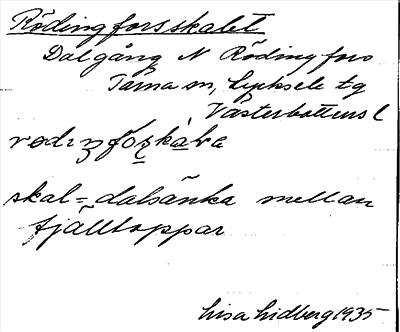 Rödingforsskalet
Dalgång N Rödingfors
Tärna sn, Lycksele tg
Västerbottens l
skal = dalsänka mellan
fjälltoppar
Lisa Lidberg 1935